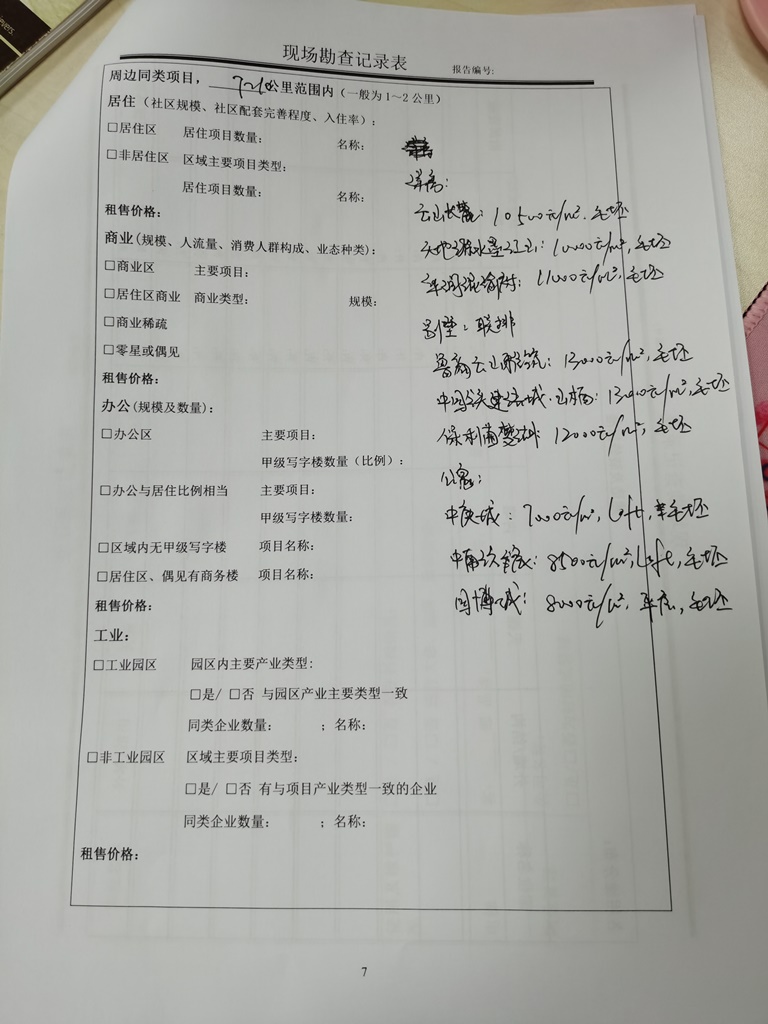 现场勘查记录表
报告编号:
周边同类项目， 7~10公里范围内（一般为1～2公里）
居住（社区规模、社区配套完善程度、入住率）：
□居住区 居住项目数量： 名称：
□非居住区 区域主要项目类型：
洋房:
居住项目数量： 名称：
租售价格： : 10500元/m², 毛坯
商业(规模、人流量、消费人群构成、业态种类)： : 10000元/m², 毛坯
□商业区 主要项目： : 11000元/m², 毛坯
□居住区商业 商业类型： 规模：
□商业稀疏 别墅: 联排
□零星或偶见 : 13000元/m², 毛坯
租售价格： 中国铁建·山语: 13000元/m², 毛坯
办公(规模及数量)：
□办公区 主要项目： 保利: 12000元/m², 毛坯
甲级写字楼数量（比例）： 公寓:
□办公与居住比例相当 主要项目： 中央城: 7000元/m², Loft, 毛坯
甲级写字楼数量：
□区域内无甲级写字楼 项目名称： : 8500元/m², Loft, 毛坯
□居住区、偶见有商务楼 项目名称： 国博城: 8000元/m², 平层, 毛坯
租售价格：
工业：
□工业园区 园区内主要产业类型:
□是/ □否 与园区产业主要类型一致
同类企业数量： ；名称：
□非工业园区 区域主要项目类型：
□是/ □否 有与项目产业类型一致的企业
同类企业数量： ；名称：
租售价格：
7